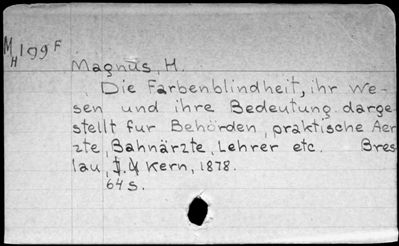 M199F
H
Magnus, H.
Die Farbenblindheit, ihr We-
sen und ihre Bedeutung darge-
stellt fur Behörden, praktische Aer
zte, Bahnärzte, Lehrer etc. Bres
lau, Kern, 1878.
64 s.